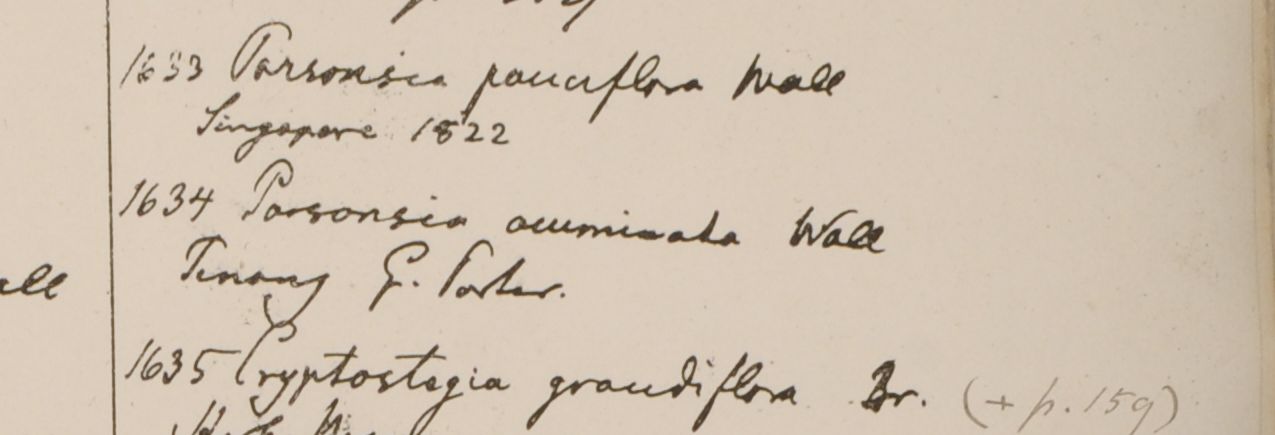 1633 Parsonsia pauciflora Wall
Singapore 1822
1634 Parsonsia acuminata Wall
Penang G. Porter.
all
1635 Cryptostegia grandiflora Br. (+ p. 159)